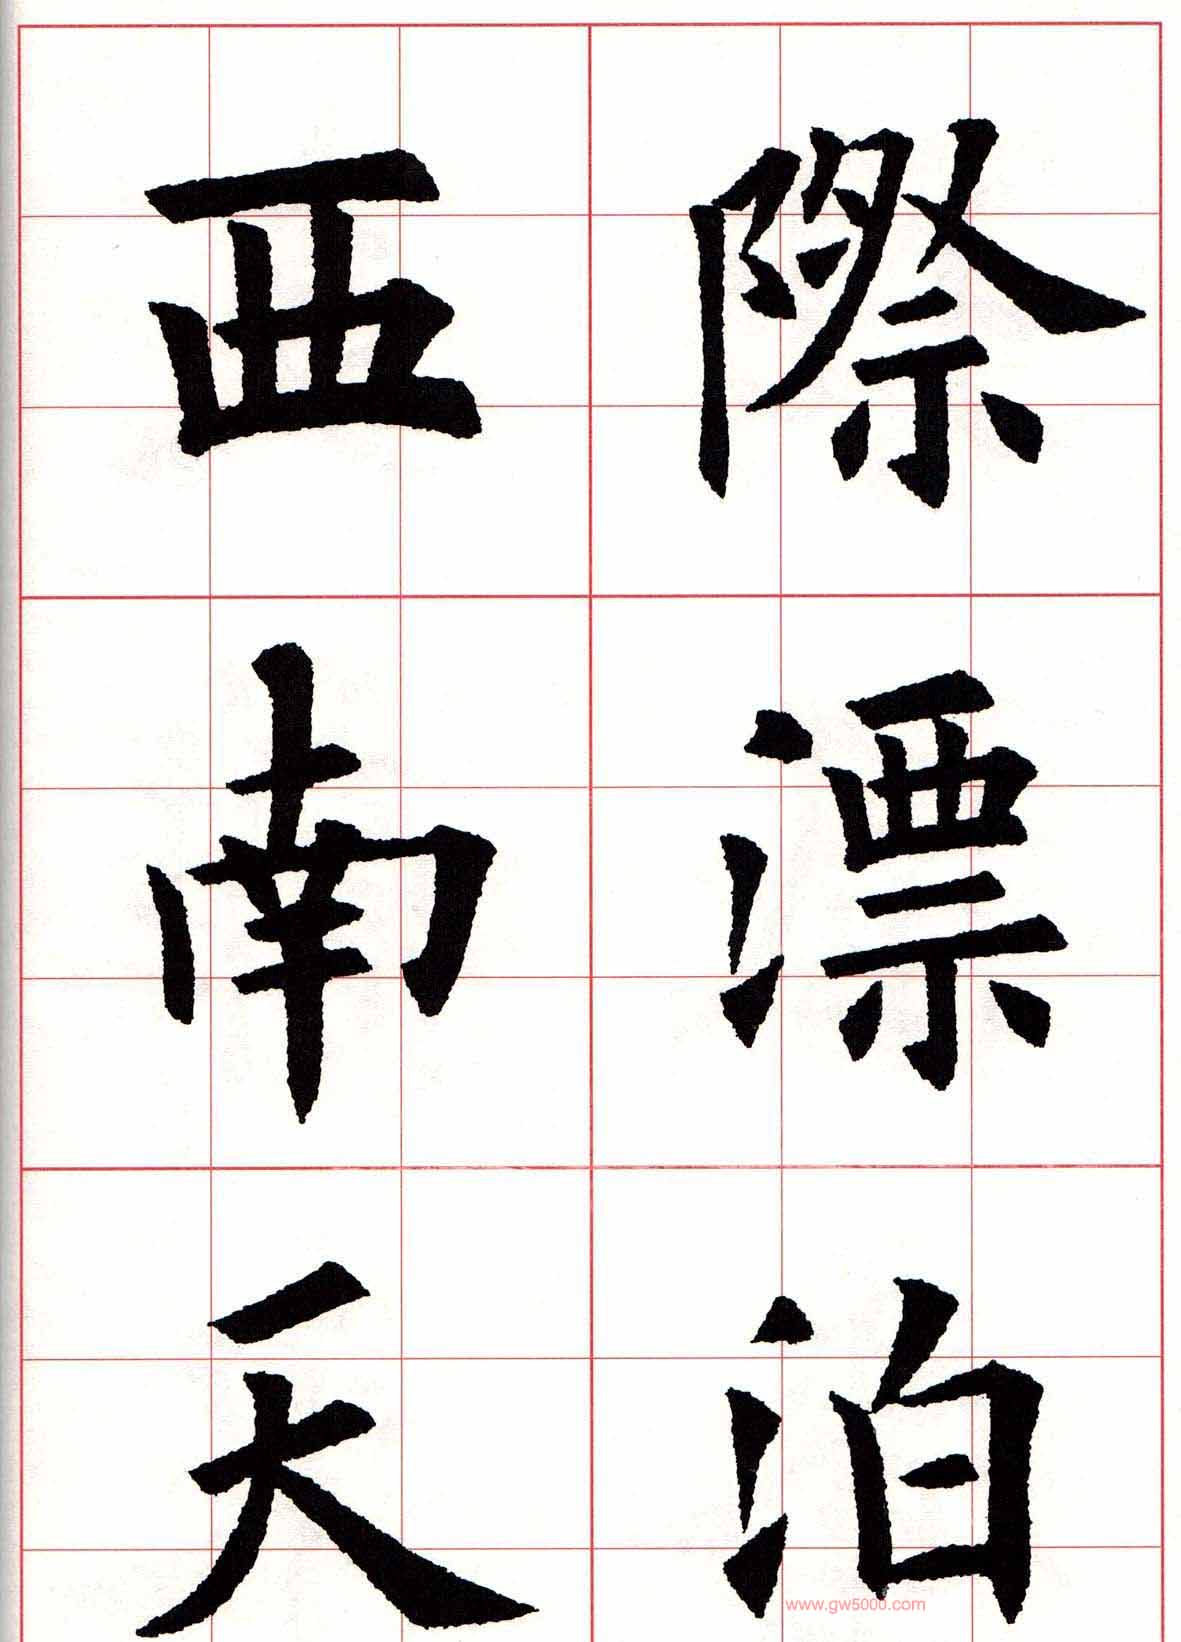 際漂泊
西南天
www.gw5000.com